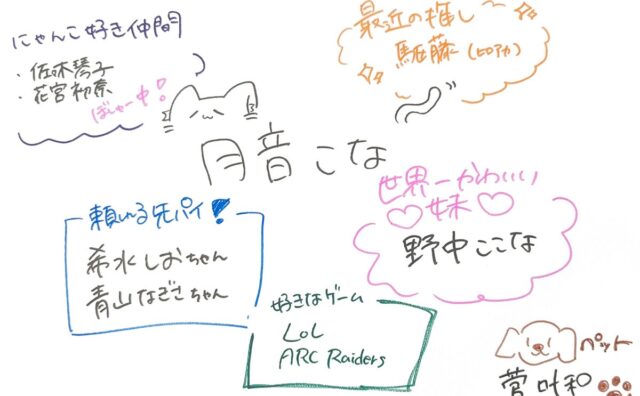 にゃんこ好き仲間
・佐々木琴子
・花宮初奈
ぼしゅー中!
最近の推し
駈藤(ヒロアカ)
月音こな
頼れる先パイ!
希水しおちゃん
青山なぎさちゃん
世界一かわいい
♡妹♡
野中ここな
好きなゲーム
LoL
ARC Raiders
ペット
菅叶和